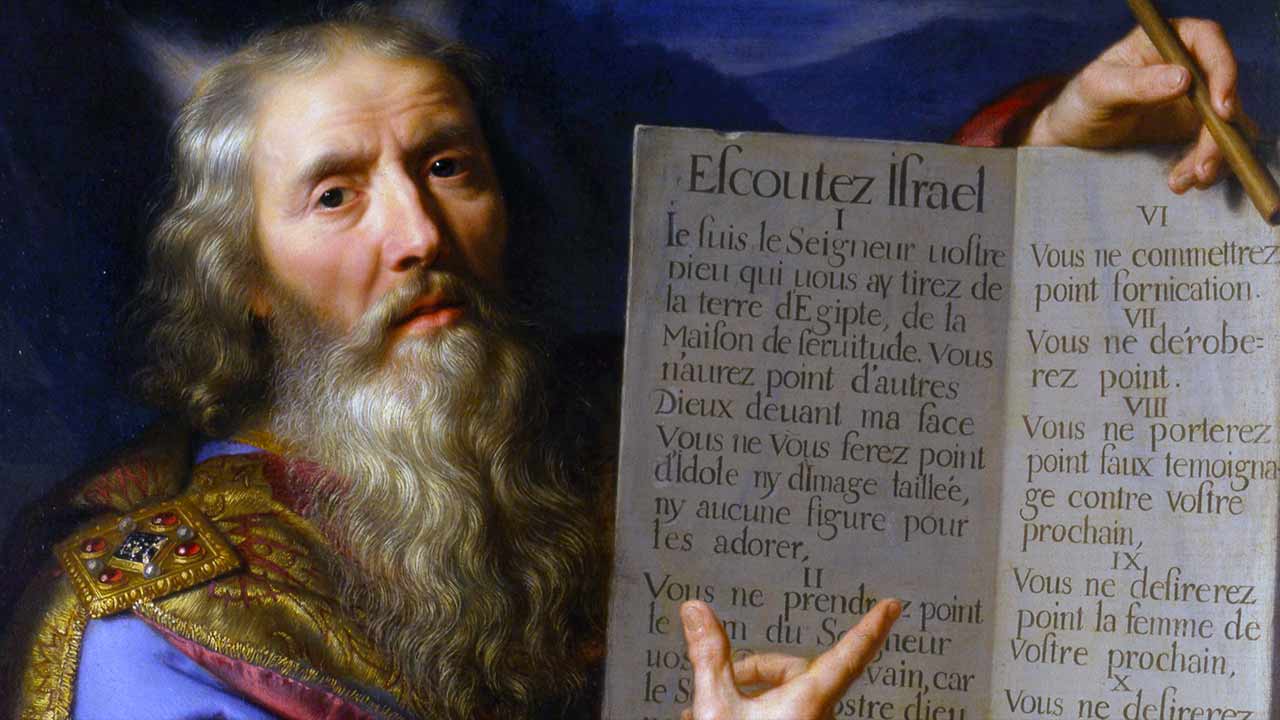 Eſcoutez Iſrael
I
Ie ſuis le Seigneur uoſtre
Dieu qui uous ay tirez de
la terre d'Egipte, de la
Maiſon de ſeruitude. Vous
n'aurez point d'autres
Dieux deuant ma face
Vous ne Vous ferez point
d'Idole ny d'Image tailleé,
ny aucune figure pour
les adorer,
II
Vous ne prendrez point
le du Seigneur
vain, car
le dieu
VI
Vous ne commettrez
point fornication.
VII
Vous ne dérobe=
rez point.
VIII
Vous ne porterez
point faux temoigna
ge contre voſtre
prochain,
IX
Vous ne deſirerez
point la femme de
voſtre prochain,
X
Vous ne deſirerez